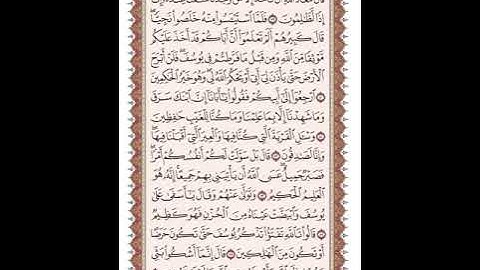 إِذًا لَّظَٰلِمُونَ ٧٩ فَلَمَّا ٱسْتَيْـَٔسُوا۟ مِنْهُ خَلَصُوا۟ نَجِيًّا ۖ
قَالَ كَبِيرُهُمْ أَلَمْ تَعْلَمُوٓا۟ أَنَّ أَبَاكُمْ قَدْ أَخَذَ عَلَيْكُم
مَّوْثِقًا مِّنَ ٱللَّهِ وَمِن قَبْلُ مَا فَرَّطتُمْ فِي يُوسُفَ ۖ فَلَنْ أَبْرَحَ
ٱلْأَرْضَ حَتَّىٰ يَأْذَنَ لِىٓ أَبِىٓ أَوْ يَحْكُمَ ٱللَّهُ لِى ۖ وَهُوَ خَيْرُ ٱلْحَٰكِمِينَ
٨٠ ٱرْجِعُوٓا۟ إِلَىٰٓ أَبِيكُمْ فَقُولُوا۟ يَٰٓأَبَانَآ إِنَّ ٱبْنَكَ سَرَقَ
وَمَا شَهِدْنَآ إِلَّا بِمَا عَلِمْنَا وَمَا كُنَّا لِلْغَيْبِ حَٰفِظِينَ
٨١ وَسْـَٔلِ ٱلْقَرْيَةَ ٱلَّتِى كُنَّا فِيهَا وَٱلْعِيرَ ٱلَّتِىٓ أَقْبَلْنَا فِيهَا ۖ
وَإِنَّا لَصَٰدِقُونَ ٨٢ قَالَ بَلْ سَوَّلَتْ لَكُمْ أَنفُسُكُمْ أَمْرًا ۖ
فَصَبْرٌ جَمِيلٌ ۖ عَسَى ٱللَّهُ أَن يَأْتِيَنِى بِهِمْ جَمِيعًا ۚ إِنَّهُۥ هُوَ
ٱلْعَلِيمُ ٱلْحَكِيمُ ٨٣ وَتَوَلَّىٰ عَنْهُمْ وَقَالَ يَٰٓأَسَفَىٰ عَلَىٰ
يُوسُفَ وَٱبْيَضَّتْ عَيْنَاهُ مِنَ ٱلْحُزْنِ فَهُوَ كَظِيمٌ
٨٤ قَالُوا۟ تَٱللَّهِ تَفْتَؤُا۟ تَذْكُرُ يُوسُفَ حَتَّىٰ تَكُونَ حَرَضًا
أَوْ تَكُونَ مِنَ ٱلْهَٰلِكِينَ ٨٥ قَالَ إِنَّمَآ أَشْكُوا۟ بَثِّى